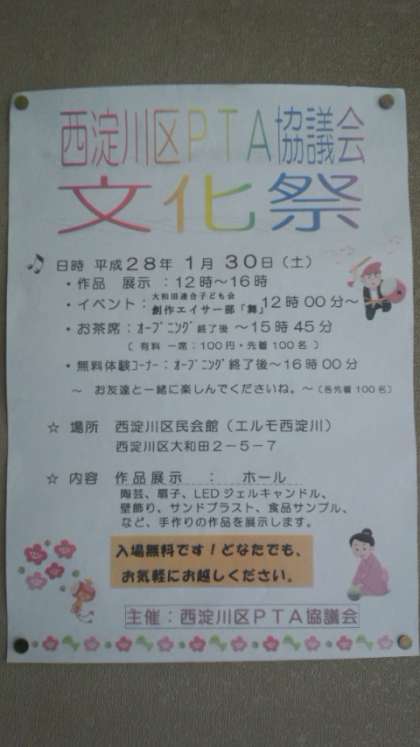 西淀川区PTA協議会
文化祭
日時 平成28年 1月 30日(土)
・作品 展示 :12時~16時
・イベント:大和田連合子ども会 創作エイサー部「舞」12時00分~
・お茶席:オープニング終了後 ~15時45分
( 有料 一席:100円・先着100名 )
・無料体験コーナー:オープニング終了後~16時00分
~ お友達と一緒に楽しんでくださいね。~(各先着100名)
☆ 場所 西淀川区民会館(エルモ西淀川)
西淀川区大和田2-5-7
☆ 内容 作品展示 : ホール
陶芸、扇子、LEDジェルキャンドル、
壁飾り、サンドブラスト、食品サンプル、
など、手作りの作品を展示します。
入場無料です!どなたでも、
お気軽にお越しください。
主催:西淀川区PTA協議会